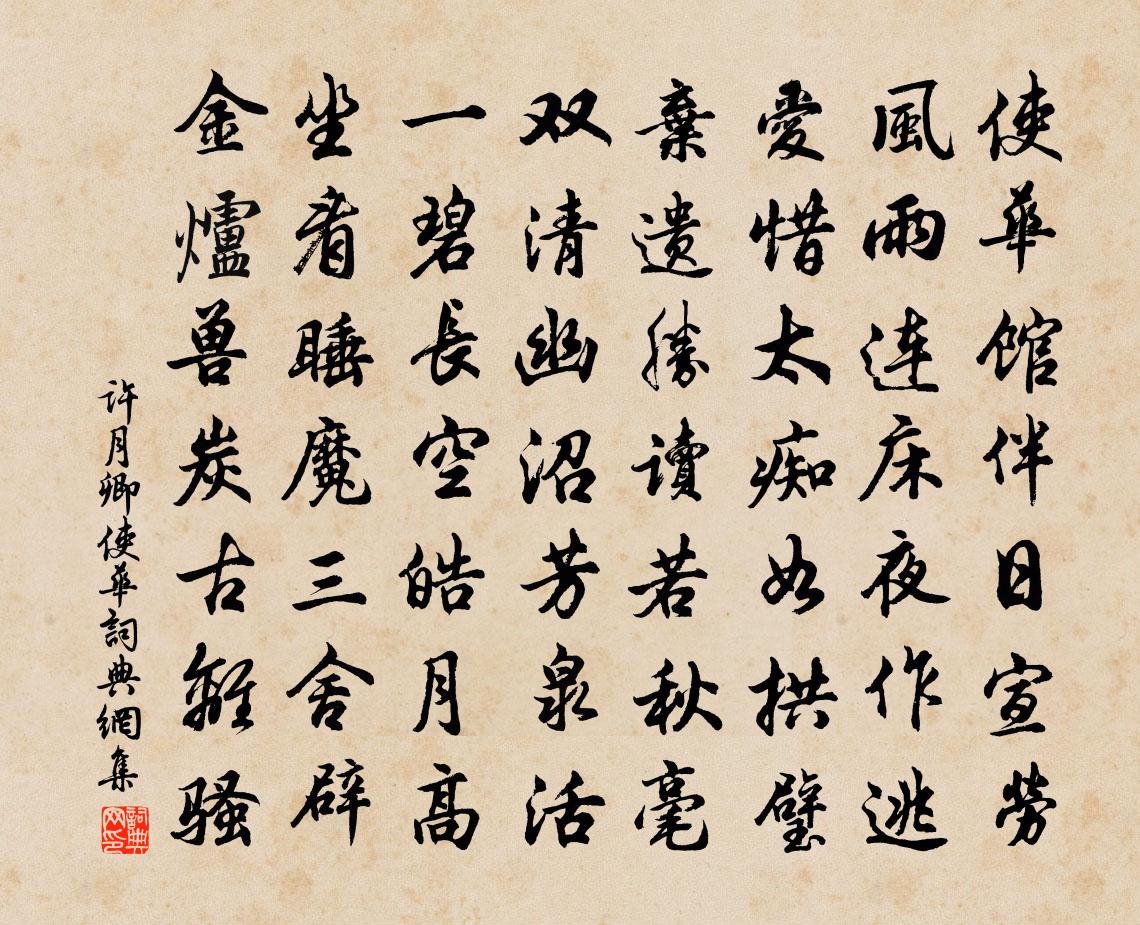 使華馆伴日宣勞
風雨连床夜作逃
愛惜太痴如拱璧
棄遗勝讀若秋毫
双清幽沼芳泉活
一碧長空皓月高
坐看睡魔三舍辟
金爐兽炭古離骚
许月卿使華詞典網集
詞典网印